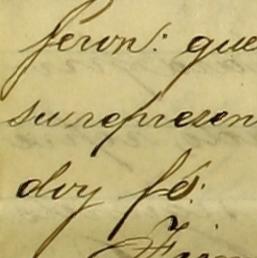 feron: que
su represen
doy fé: